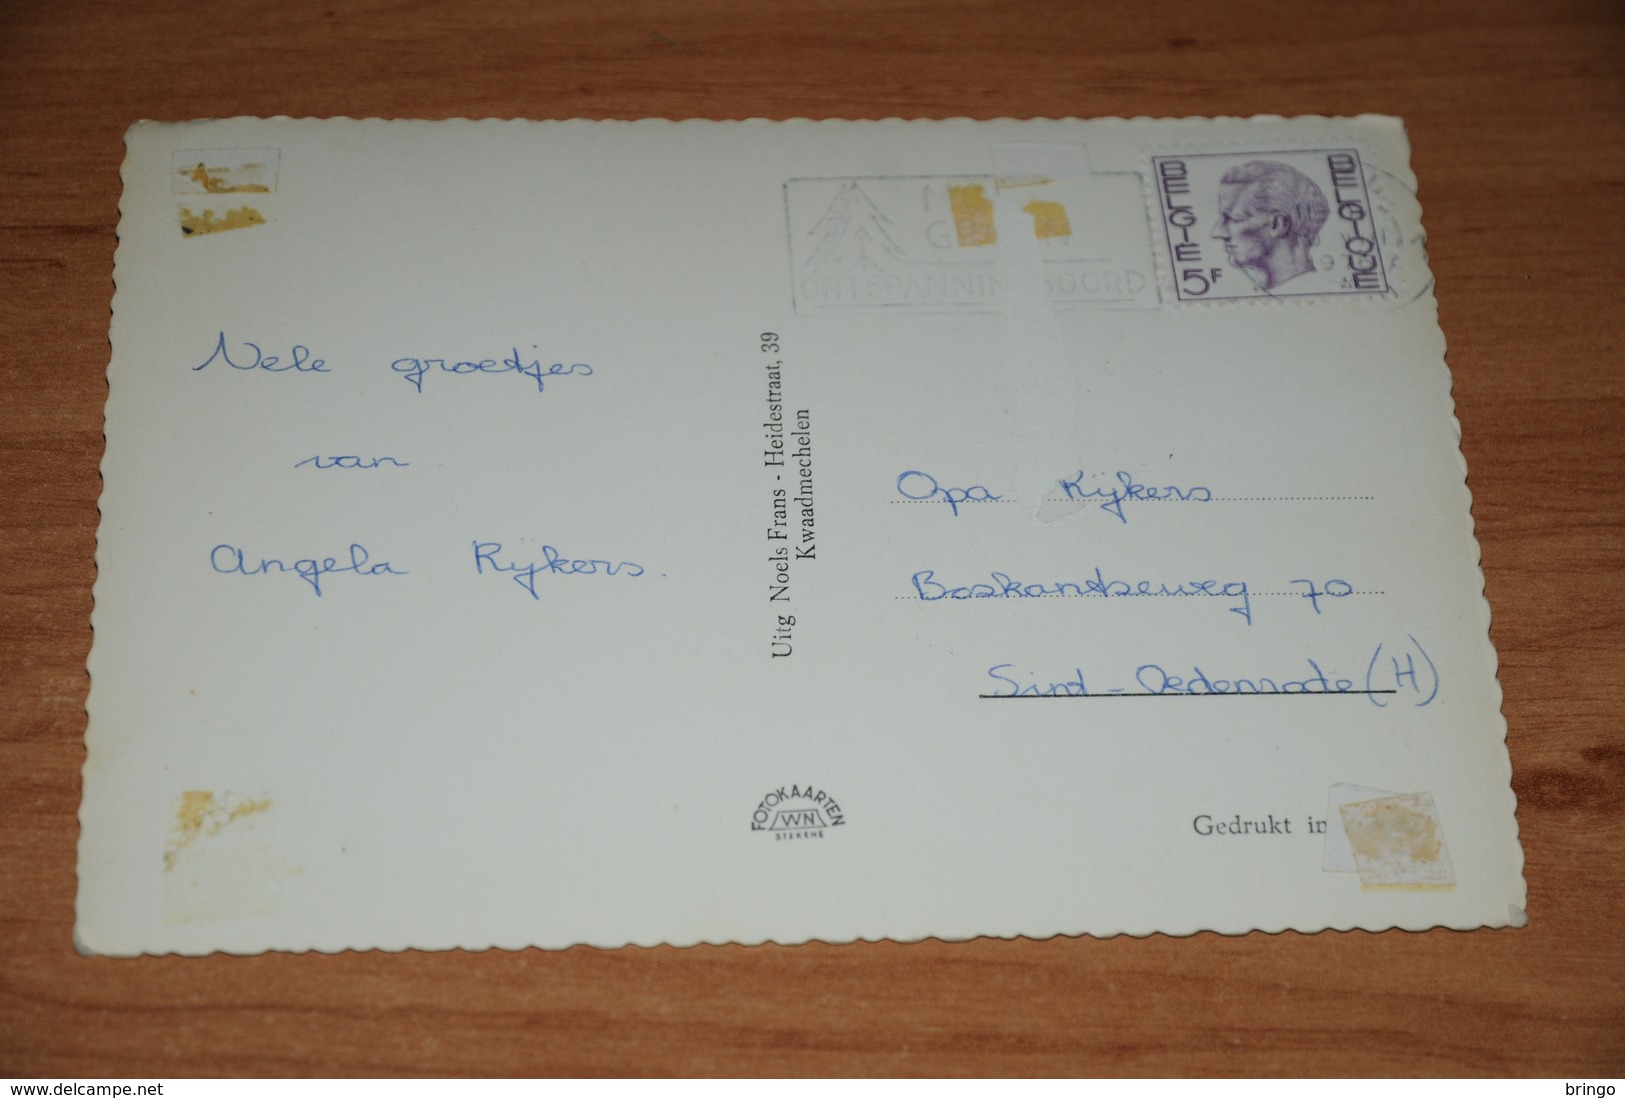 Vele groetjes
van
Angela Rijkers.
Uitg Noels Frans - Heidestraat, 39
Kwaadmechelen
FOTOKAARTEN
WN
STEKENE
ONTSPANNIN OORD
BELGIE 5F
BELGIQUE
Opa Rijkers
Boskantseweg 70
Sint-Oedenrode (H)
Gedrukt in
www.delcampe.net
bringo